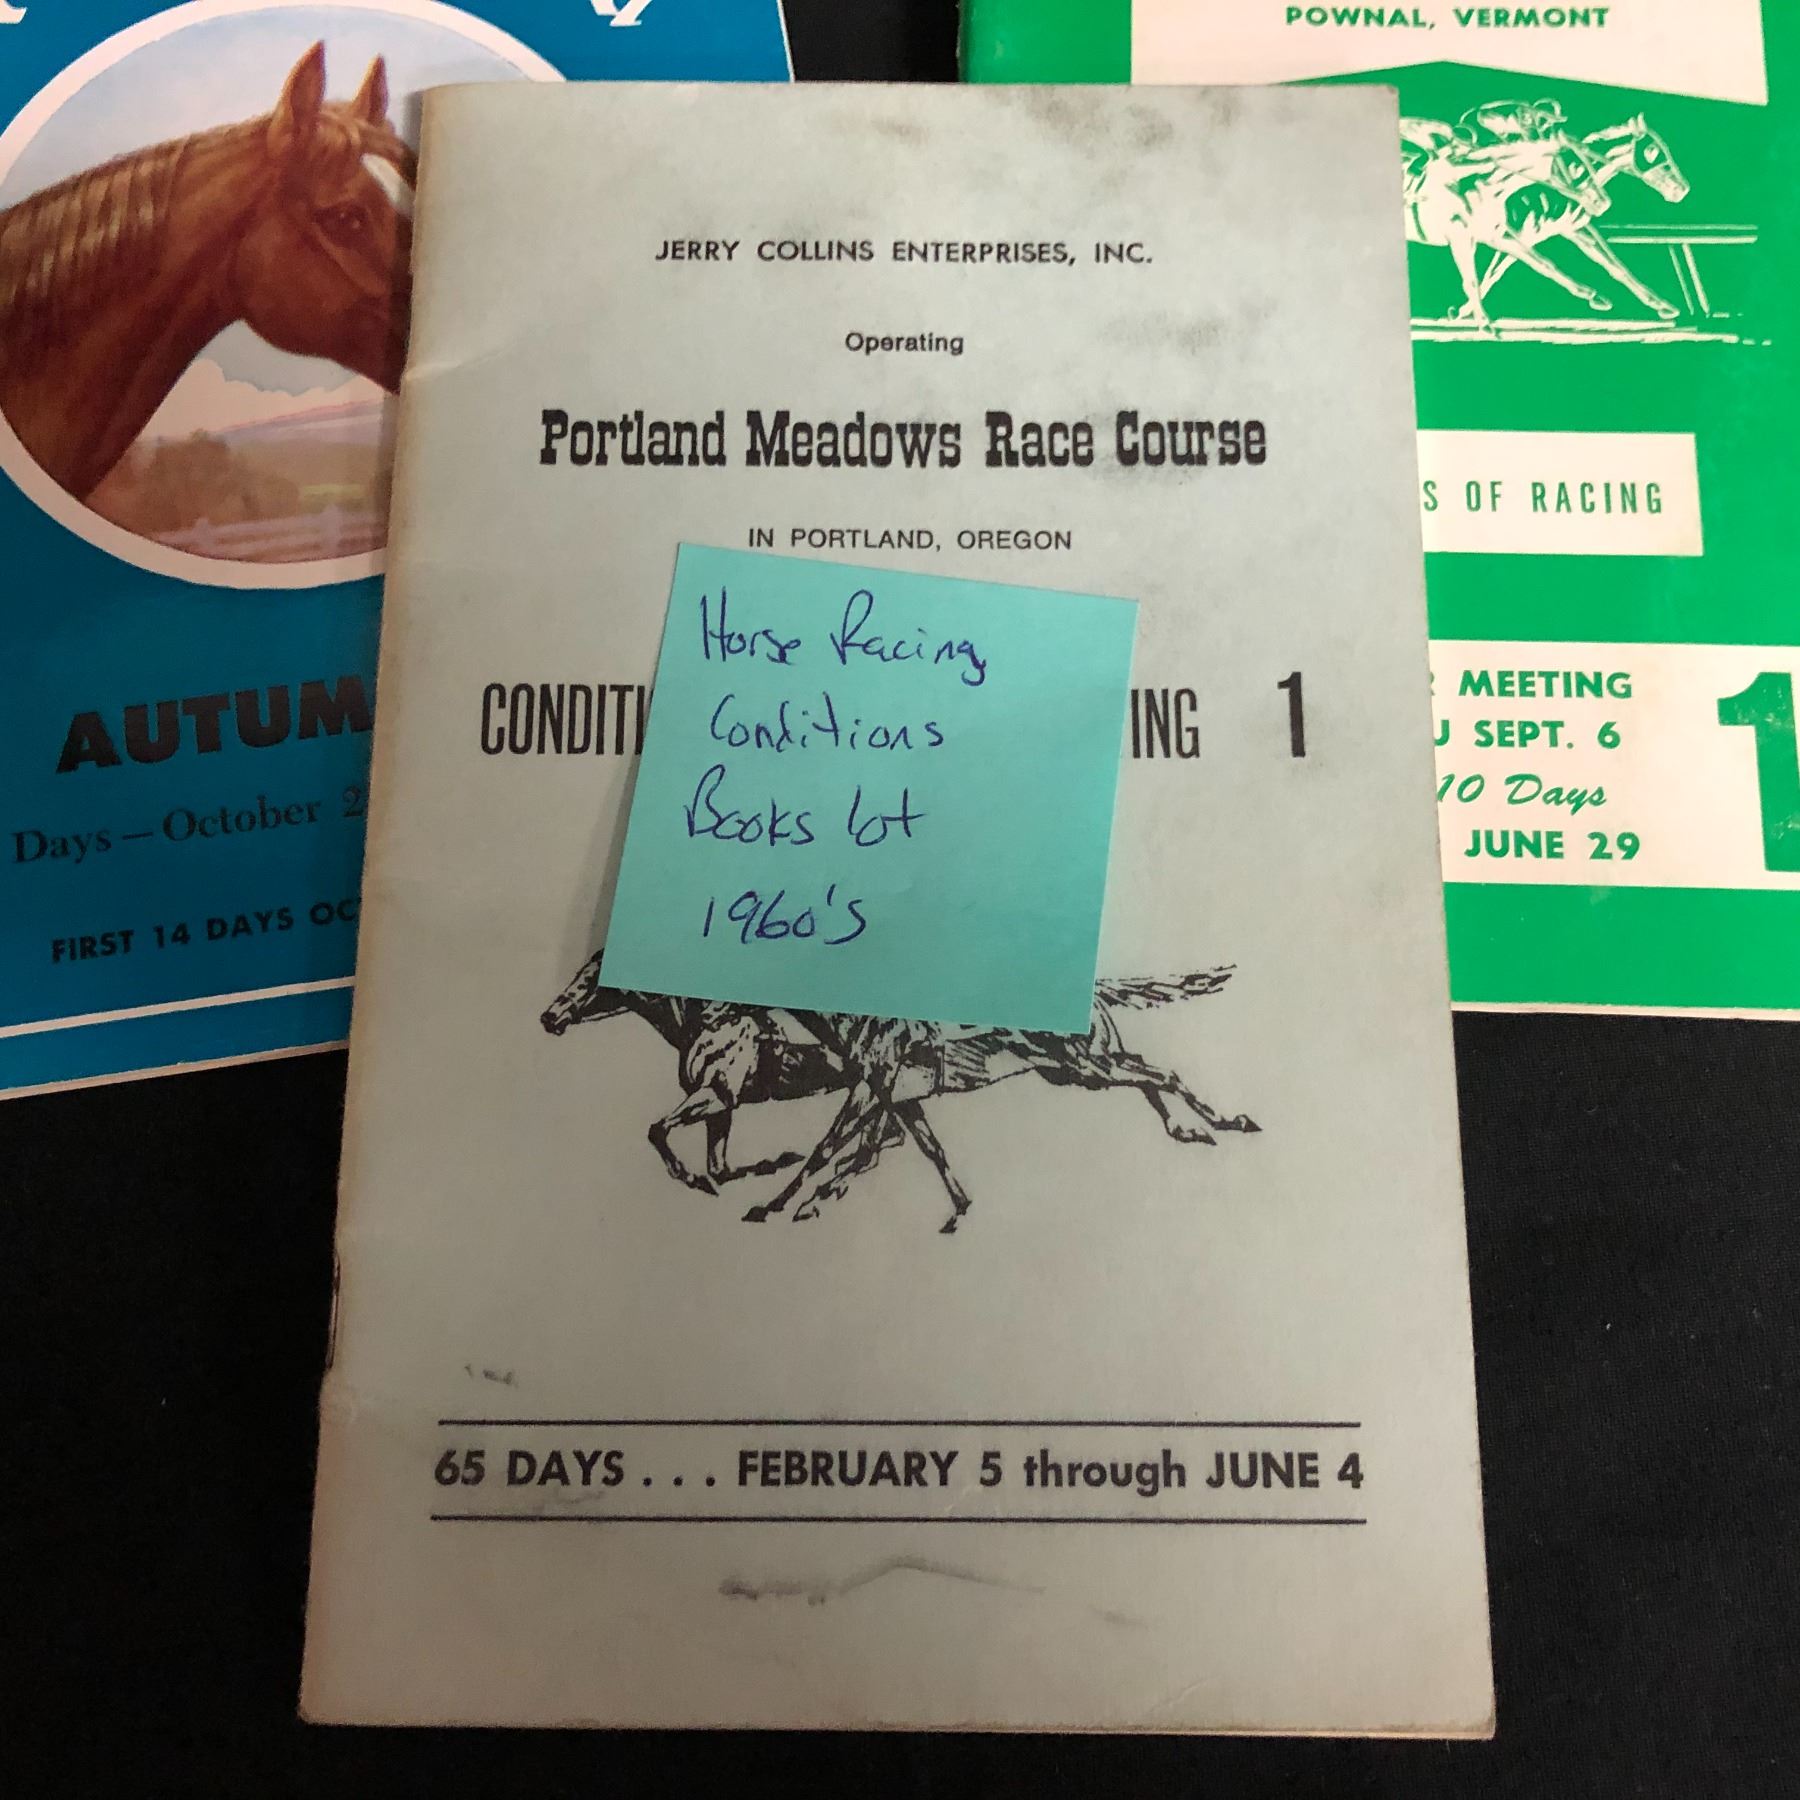 JERRY COLLINS ENTERPRISES, INC.
Operating
Portland Meadows Race Course
IN PORTLAND, OREGON
CONDITI
ING 1
Horse Racing
Conditions
Books lot
1960's
65 DAYS . . . FEBRUARY 5 through JUNE 4
AUTUM
Days — October 2
FIRST 14 DAYS OC
POWNAL, VERMONT
S OF RACING
MEETING
U SEPT. 6
10 Days
JUNE 29
1